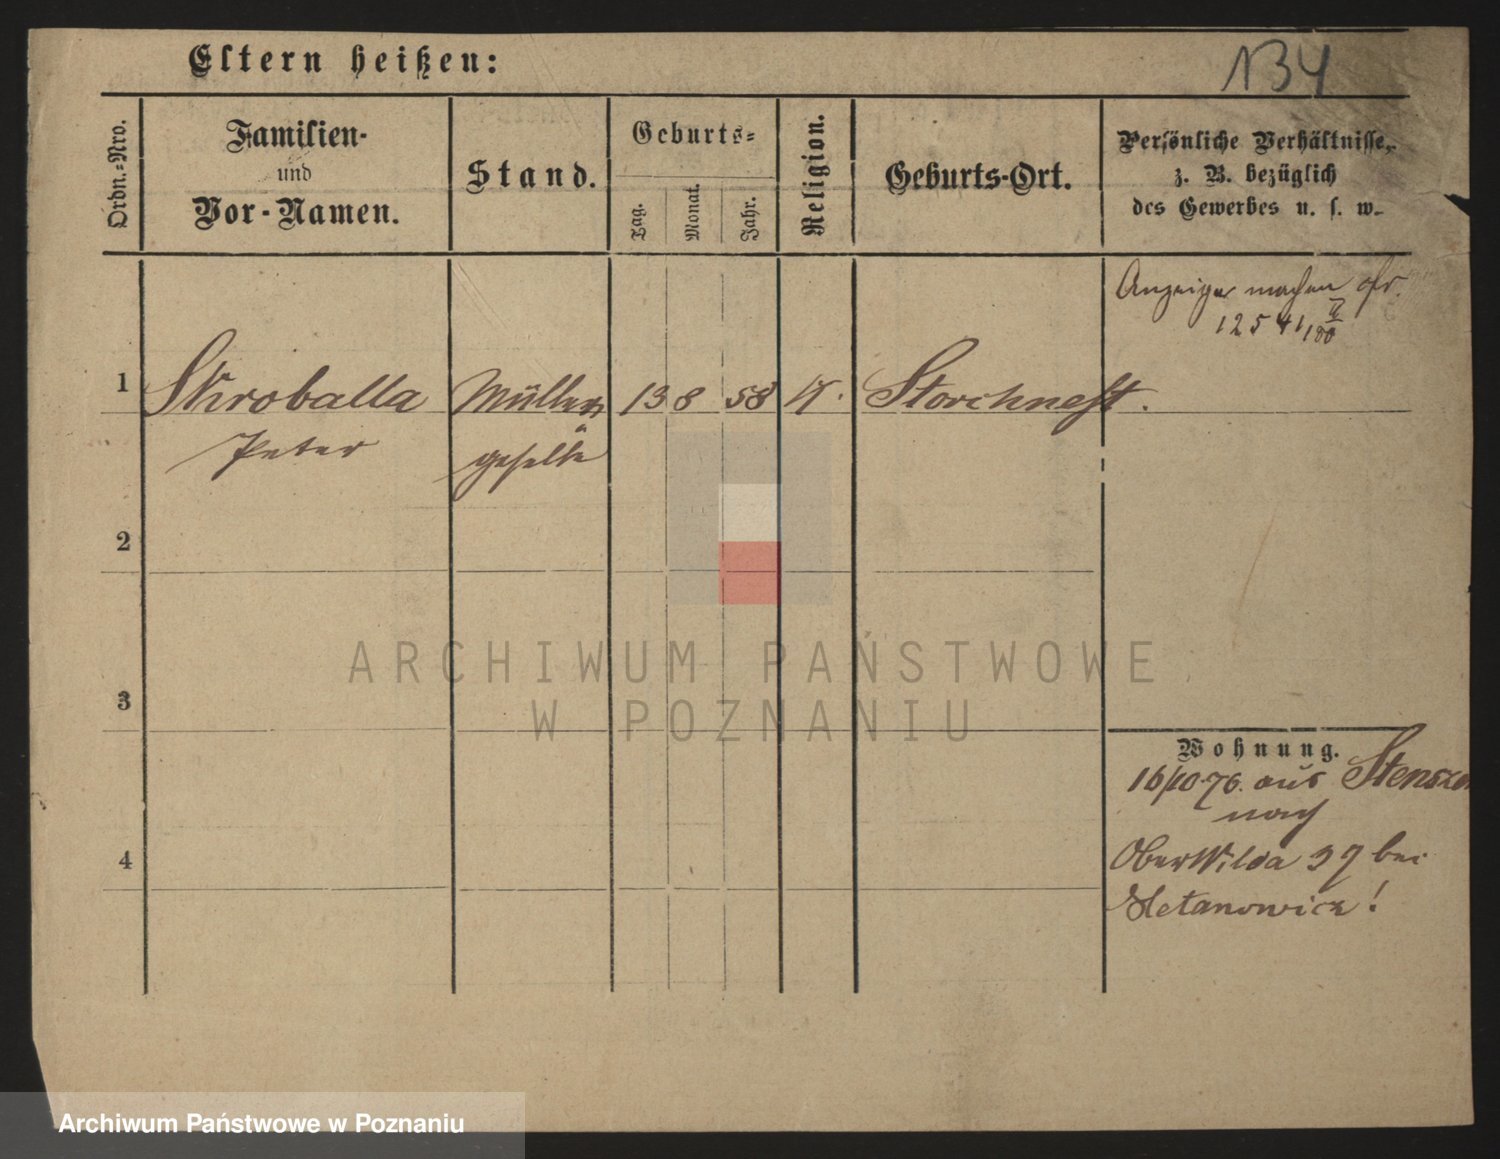 Eltern heißen:
134
Ordn.-Nro.
Familien-
und
Vor-Namen.
Stand.
Geburts-
Tag.
Monat.
Jahr.
Religion.
Geburts-Ort.
Persönliche Verhältnisse,
z. B. bezüglich
des Gewerbes u. s. w.
Anzeige machen
1254
1
Skroballa
Müller
13
8
58
K.
Storchnest.
Peter
geselle
2
3
4
Wohnung.
16/10.76. aus
nach
Ober Wilda 37 bei
ARCHIWUM PAŃSTWOWE
W POZNANIU
Archiwum Państwowe w Poznaniu